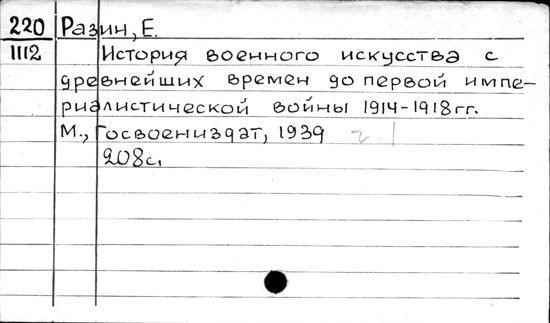 220 Разин, Е.
1112 История военного искусства с
древнейших времен до первой импе-
риалистической войны 1914-1918гг.
М., Госвоениздат, 1939
208с.